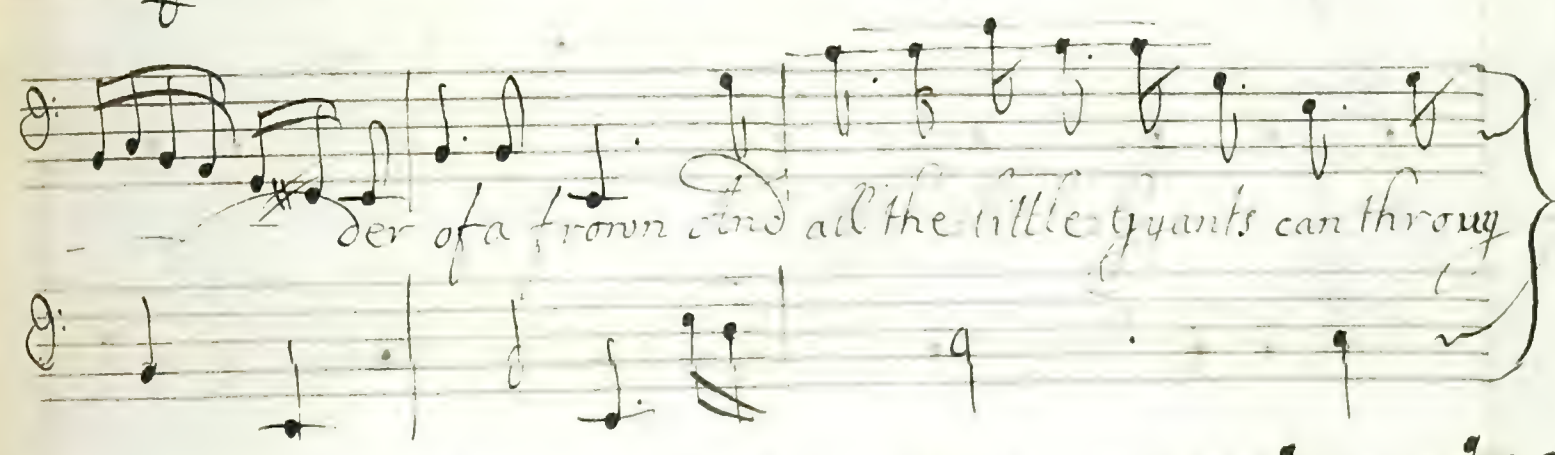 der of a frown and all the little Gyants can throug